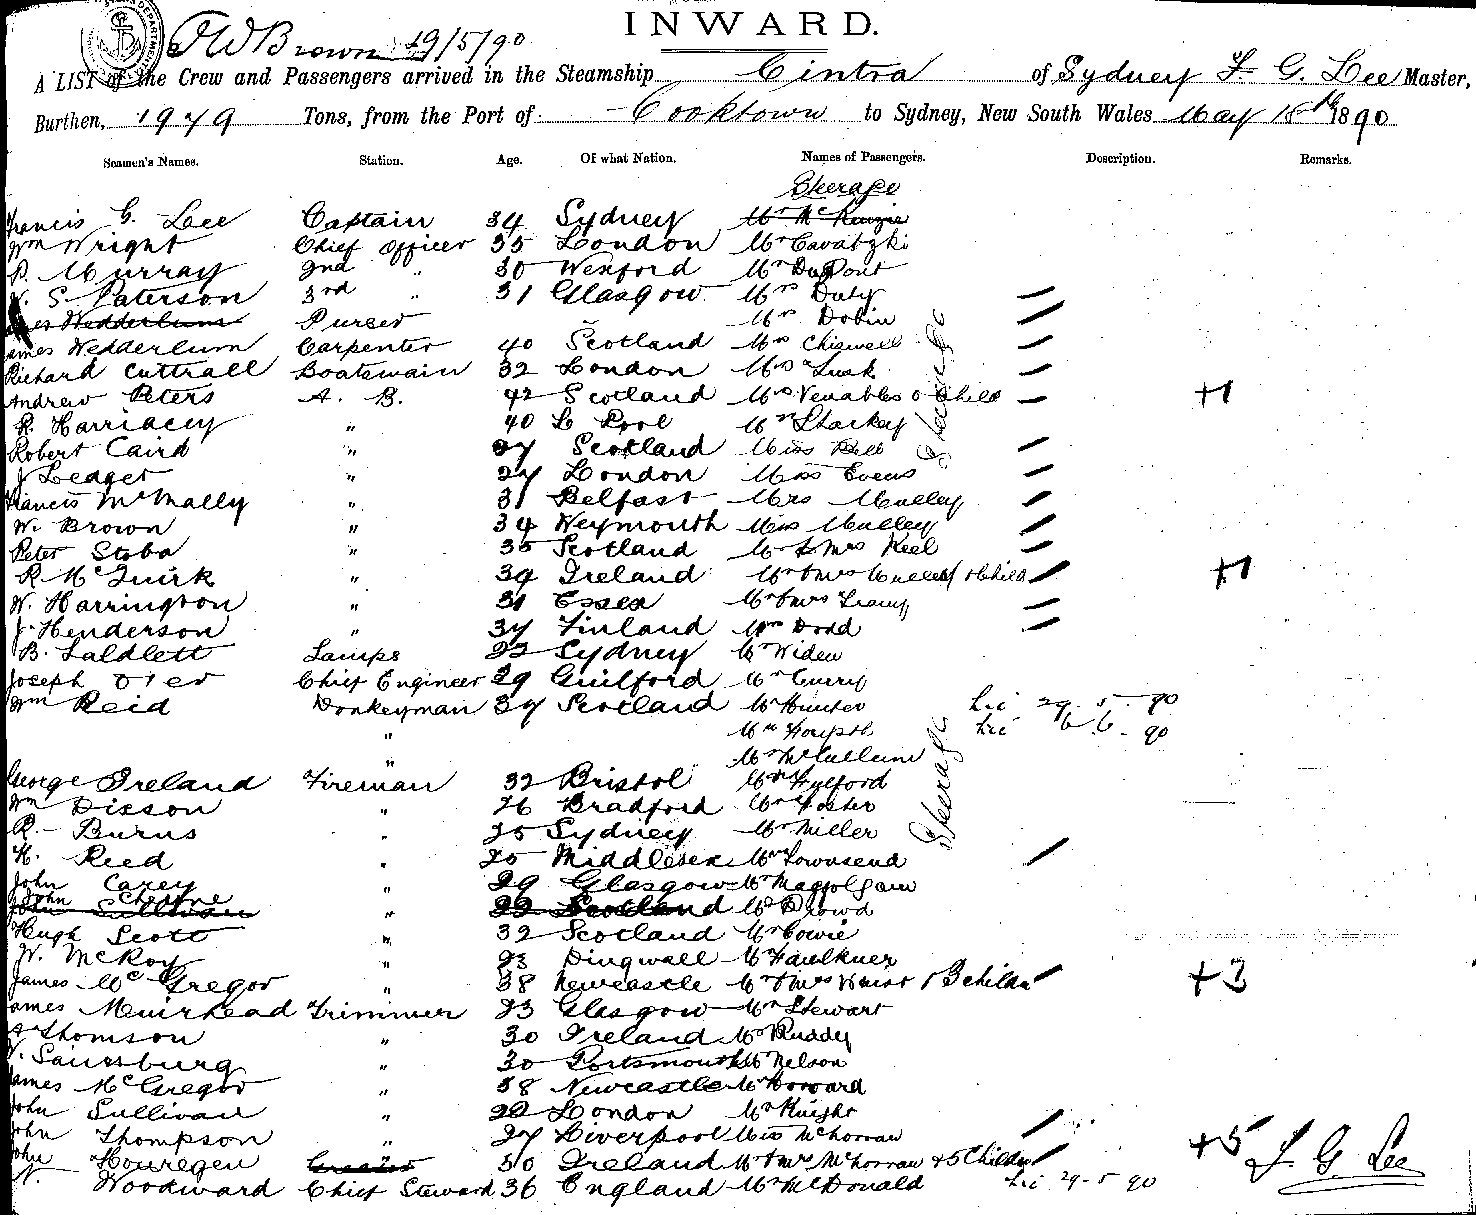 INWARD.
Brown 19/5/90
A LIST of the Crew and Passengers arrived in the Steamship Cintra of Sydney F. G. Lee Master,
Burthen, 1979 Tons, from the Port of Cooktown to Sydney, New South Wales May 18th 1890
Seamen's Names. Station. Age. Of what Nation. Names of Passengers. Description. Remarks.
Steerage
Francis G. Lee Captain 34 Sydney Mr McKenzie
Wm Wright Chief Officer 35 London Mr
P. Murray 2nd " 30 Wexford Mr DuPont
S. Paterson 3rd " 31 Glasgow Mrs Duty
Wedderburn Purser Mrs Dobin
James Wedderburn Carpenter 40 Scotland Mrs Chiswell
Richard Cuttrall Boatswain 32 London Mrs Lusk
Andrew Peters A. B. 42 Scotland Mrs Venables & Child +1
R. " 40 L Pool Mr Sharkey
Robert Caird " 27 Scotland Miss Bell
J Ledger " 27 London Miss Evens
Francis McNally " 31 Belfast Mrs Mulley
W. Brown " 34 Weymouth Miss Mulley
Peter " 35 Scotland Mr & Mrs Keel
R. McGuirk " 39 Ireland Mr & Mrs & Child +1
W. Harrington " 31 Essex Mr & Mrs
J. Henderson " 37 Finland Mrs Dodd
B. Lamps 22 Sydney Mr Widen
Joseph Chief Engineer 29 Guilford Mr
Wm Reid Donkeyman 37 Scotland Mr Hunter 29-5-90
" Mr Forsyth 6.6.90
" Mr McCullum
Steerage
George Ireland Fireman 32 Bristol Mr Fulford
Wm Dixson " 26 Bradford Mr Foster
R. Burns " 25 Sydney Mr Miller
H. Reed " 20 Middlesex Mrs Townsend
John Carey " 29 Glasgow Mr
John Cheyne
John Sullivan " 22 Scotland Mr
Hugh Scott " 32 Scotland Mr Cowie
W. McKoy " 23 Dingwall Mr Faulkner
James McGregor " 38 Newcastle Mr & Mrs & 3 childn +3
James Muirhead Trimmer 23 Glasgow Mr Stewart
Thomson " 30 Ireland Mr Ruddy
" 30 Portsmouth Mr Nelson
James McGregor " 38 Newcastle Mr Howard
John Sullivan " 22 London Mr Knight
John Thompson " 27 Liverpool Miss
John Houregen 50 Ireland Mr & Mrs & 5 Childn +5 F. G. Lee
N. Woodward Chief Steward 36 England Mr McDonald 29-5 90